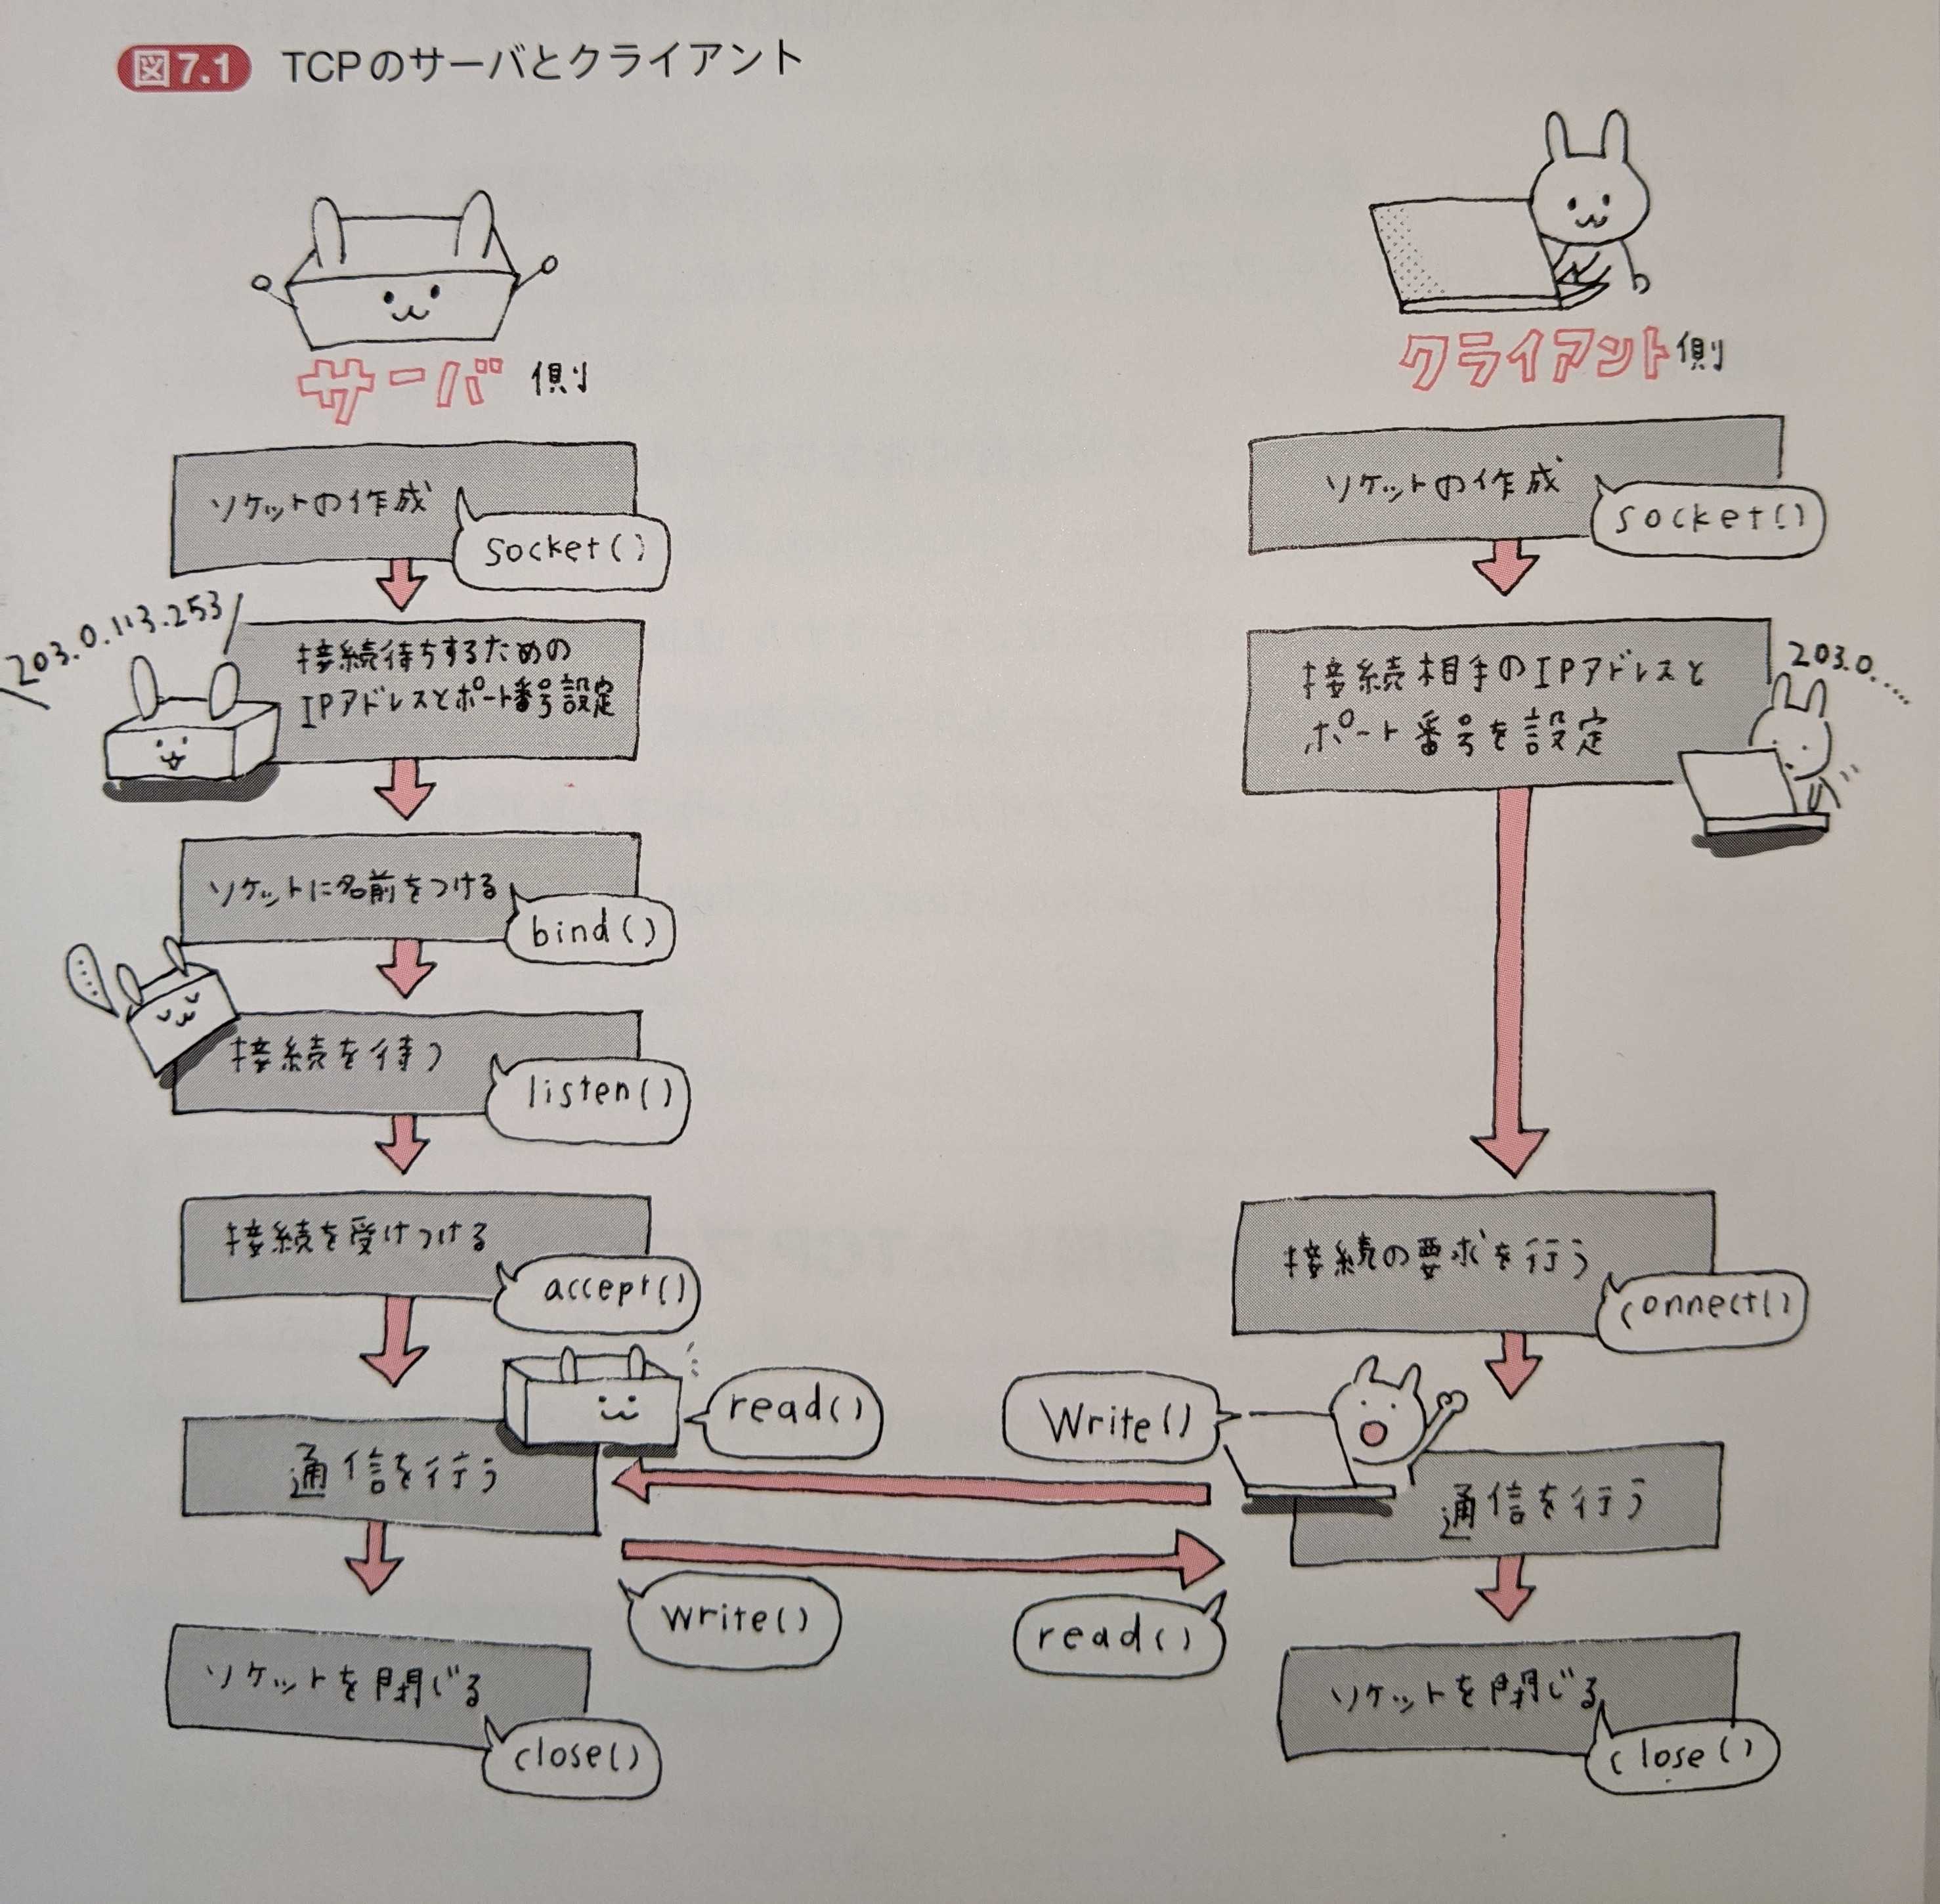 図7.1 TCPのサーバとクライアント
サーバ側
ソケットの作成
socket()
203.0.113.253
接続待ちするための
IPアドレスとポート番号設定
ソケットに名前をつける
bind()
接続を待つ
listen()
接続を受けつける
accept()
通信を行う
read()
write()
ソケットを閉じる
close()
クライアント側
ソケットの作成
socket()
接続相手のIPアドレスと
ポート番号を設定
203.0.....
接続の要求を行う
connect()
Write()
通信を行う
read()
ソケットを閉じる
close()